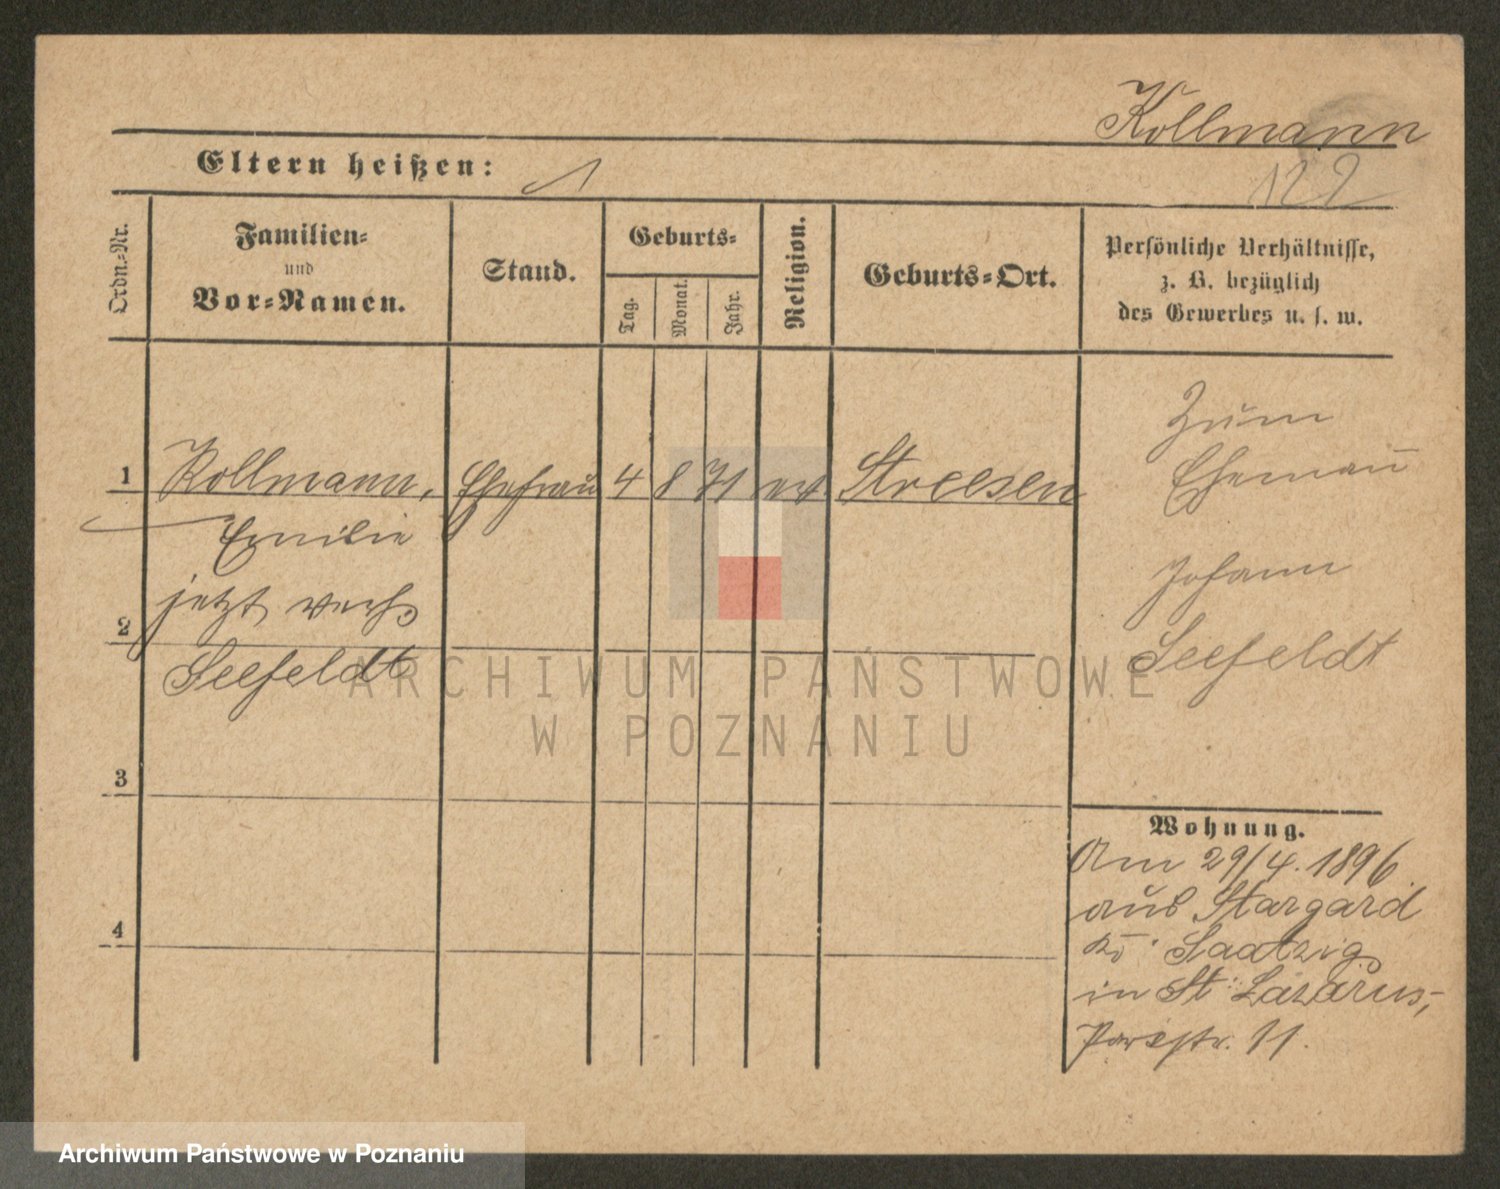 Kollmann
Eltern heißen: 1
122
Ordn.-Nr.
Familien-
und
Vor-Namen.
Stand.
Geburts-
Tag.
Monat.
Jahr.
Religion.
Geburts-Ort.
Persönliche Verhältnisse,
z. B. bezüglich
des Gewerbes u. s. w.
1 Kollmann, Ehefrau 4 8 71 ev Streesen
Emilie
jetzt verh.
2
Seefeldt
3
4
Zum
Ehemann
Johann
Seefeldt
Wohnung.
Am 29/4. 1896
aus Stargard
Saatzig
in St. Lazarus,
Parkstr. 11.
ARCHIWUM PAŃSTWOWE
W POZNANIU
Archiwum Państwowe w Poznaniu